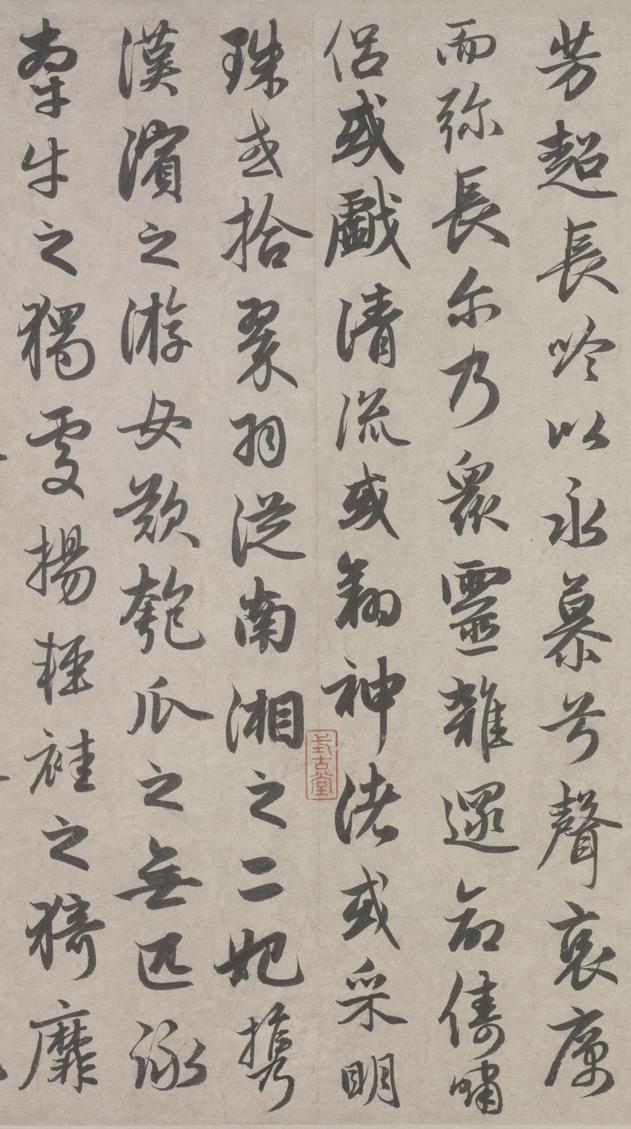 芳超長吟以永慕兮聲哀厲
而弥長尔乃眾靈雜遝命儔嘯
侣或戲清流或翔神渚或采明
珠或拾翠羽從南湘之二妃攜
漢濱之游女歎匏瓜之無匹詠
牽牛之獨處揚輕袿之猗靡
式古堂